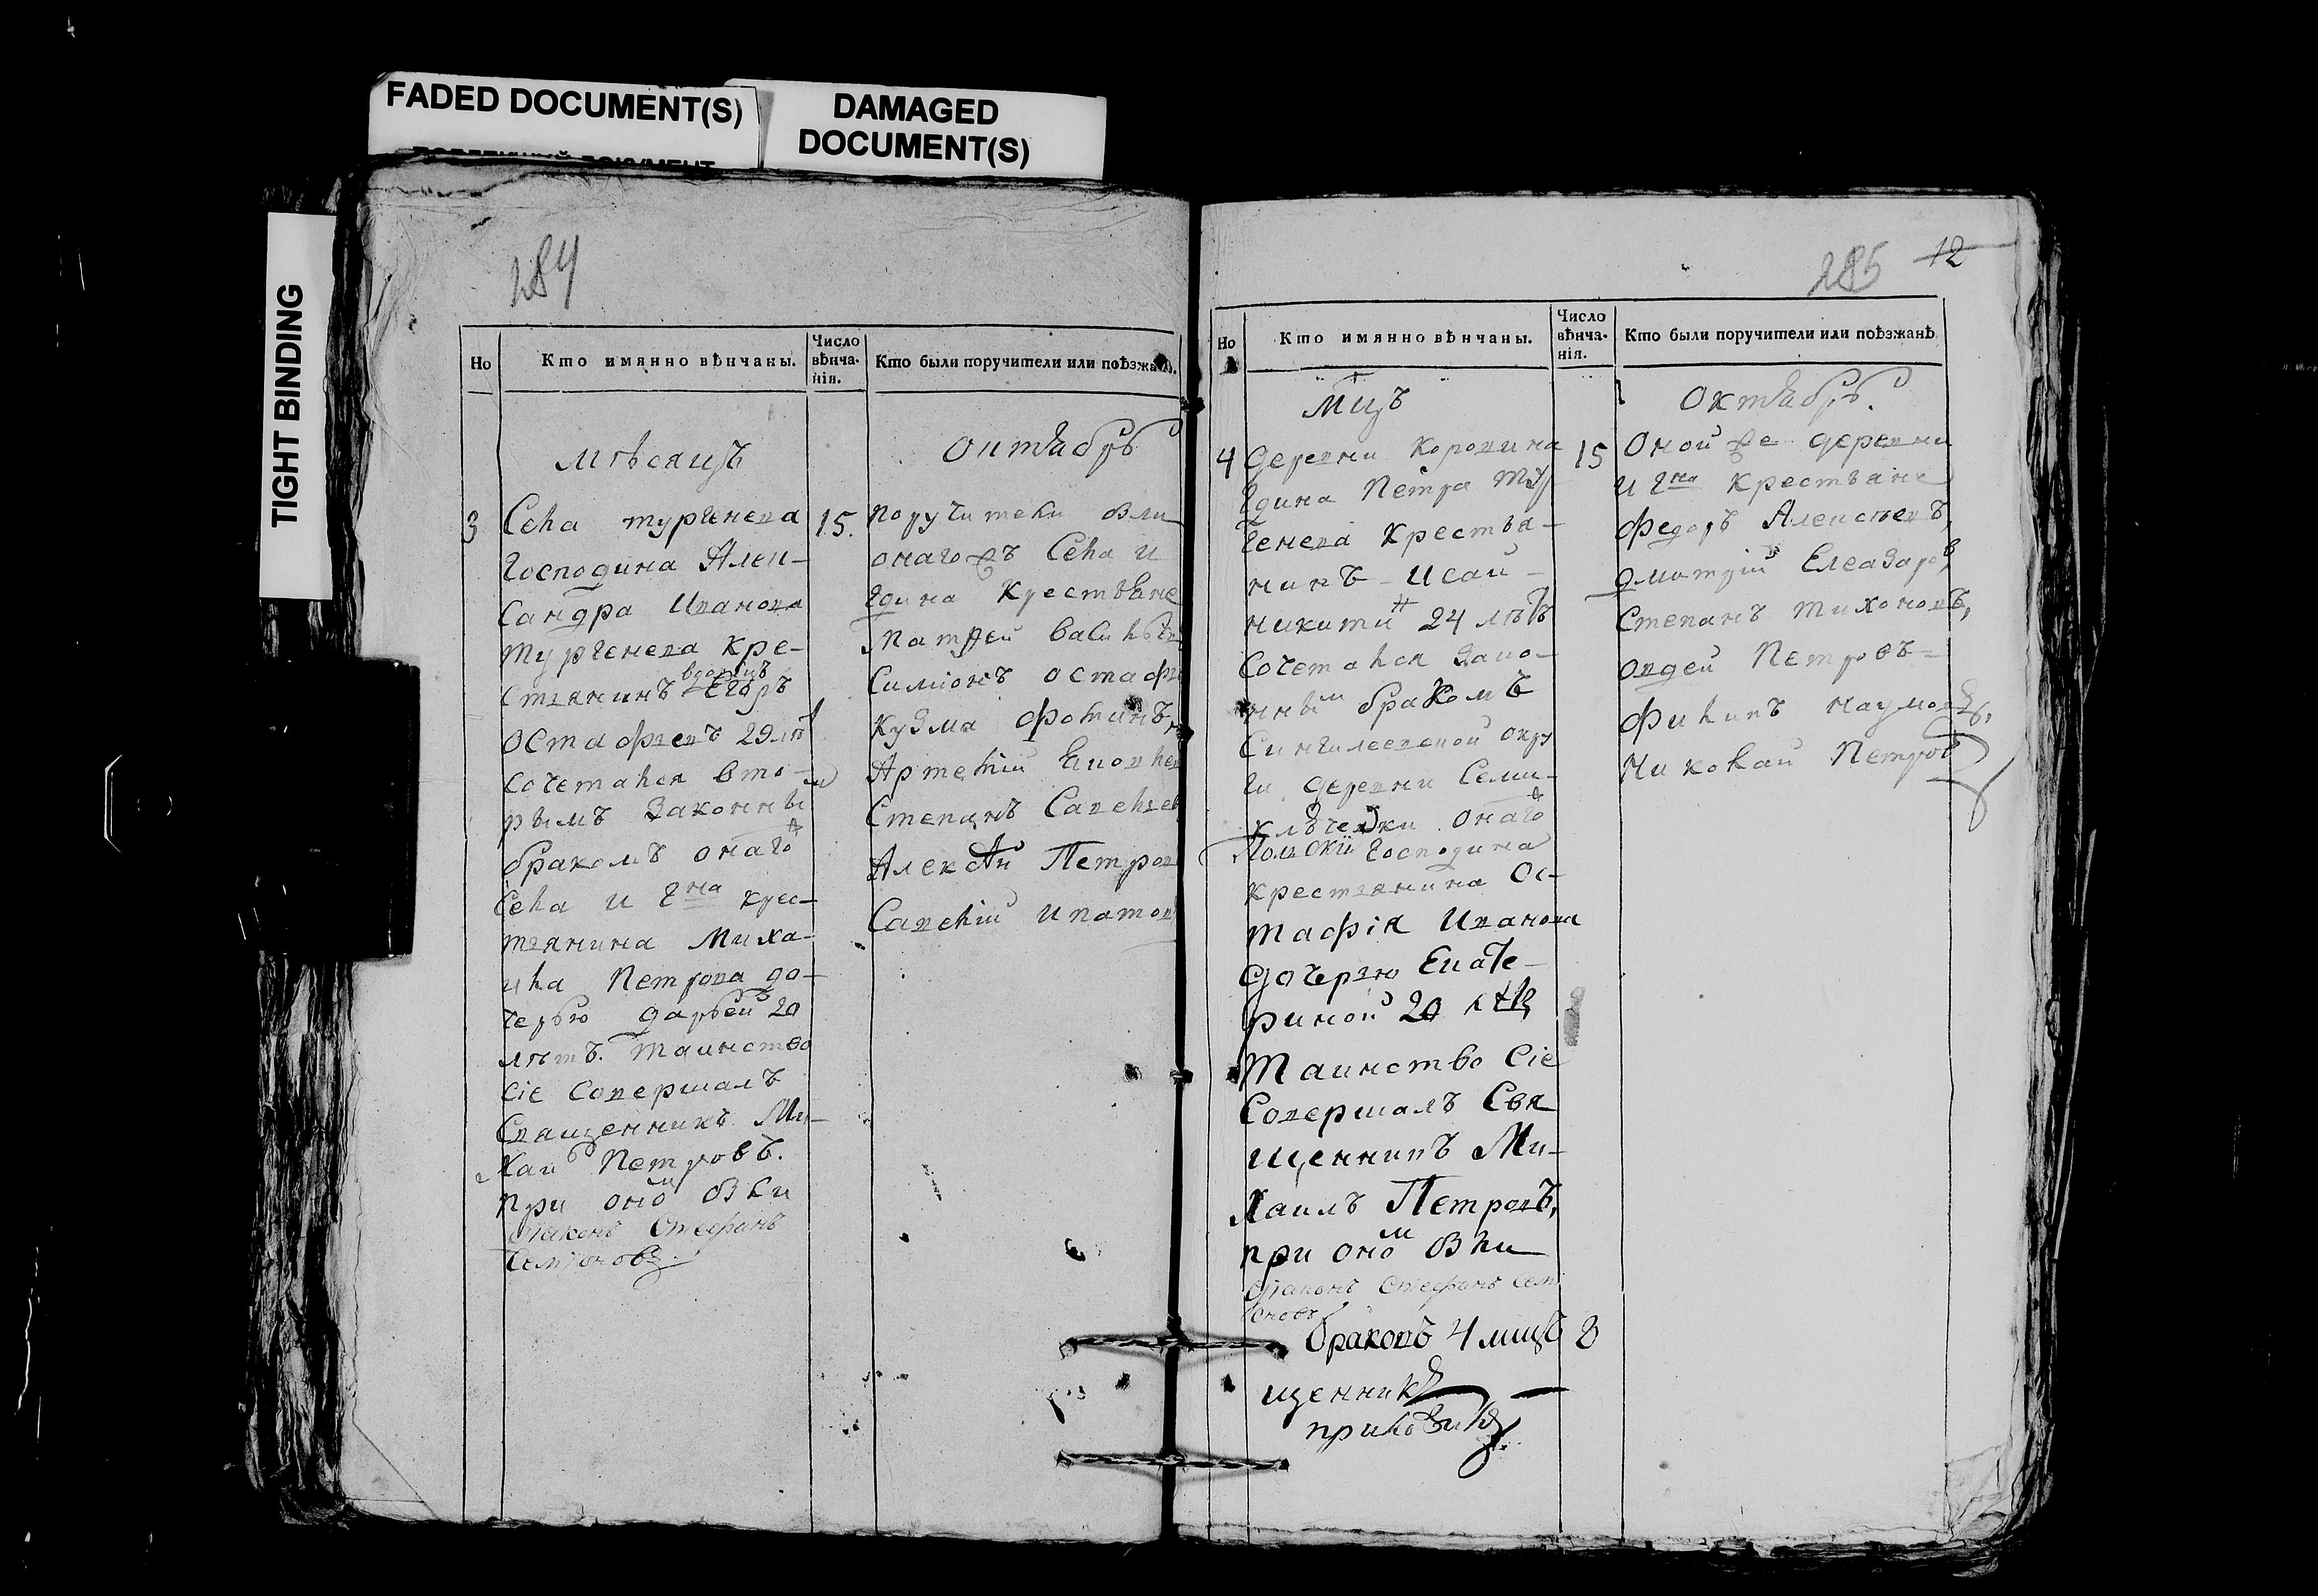 FADED DOCUMENT(S)
DAMAGED
DOCUMENT(S)
TIGHT BINDING
284
Но
Кто имянно вѣнчаны.
Число
вѣнча-
нія.
Кто были поручители или поѣзжанѣ.
мѣсяцъ
октябрь
3
Села тургенева
господина Алек-
сандра Иванова
тургенева кре-
вдовецъ
стьянинъ Егоръ
остафьевъ 29 лѣт
сочетался вто-
рымъ законны м
бракомъ онаго ж
села и гна крес-
тьянина Миха-
ила Петрова до-
черью дарьей 20
лѣтъ. таинство
сіе совершалъ
священникъ Ми-
хаил Петровъ.
при оном были
діаконъ Стефанъ
Семіоновъ
15.
поручители были
онагожъ села и
гдина крестьяне
матвей васильев
Симіонъ остафь
кузма фотинъ,
Артемій
Степанъ Савельев
Алексѣй Петров
Савелій ипатов
285 12
Но
Кто имянно вѣнчаны.
Число
вѣнча-
нія.
Кто были поручители или поѣзжанѣ
мцъ
октябрь.
4
деревни коровина
гдина Петра тур
генева крестья-
нинъ Исай
никитин 24 лѣтъ
сочетался зако-
нным бракомъ
Сингилеевской окру
ги деревни Семи-
ключевки онаго ж
господина
крестьянина Ос-
тафія Иванова
дочерью Екате-
риной 20 лѣтъ
таинство сіе
совершалъ свя
щенникъ Ми-
хаилъ Петровъ,
при оном были
діаконъ Стефанъ Сем
іоновъ
браковъ 4 лицъ 8
щенникъ
приложилъ
15
оной же деревни
и гна крестьяне
федоръ Алексѣевъ,
дмитрій Елеазаров,
Степанъ тихоновъ,
авдей Петровъ
филипъ наумовъ,
николай Петров